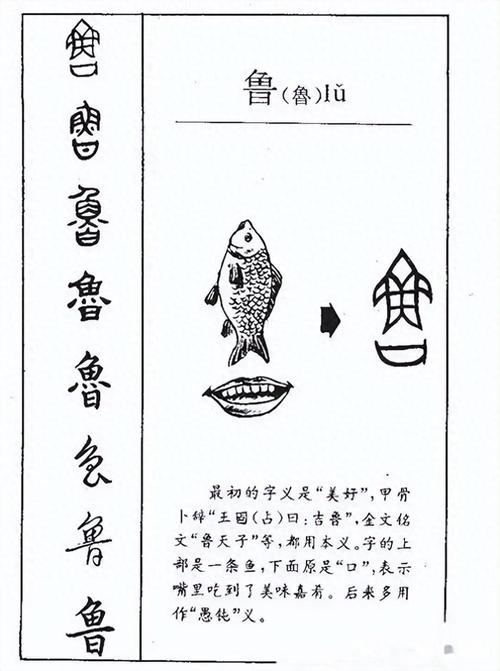 鲁(魯)lǔ
最初的字义是“美好”,甲骨
卜辞“王固(占)曰:吉鲁”,金文铭
文“鲁天子”等,都用本义。字的上
部是一条鱼,下面原是“口”,表示
嘴里吃到了美味嘉肴。后来多用
作“愚钝”义。
魯
魯
魯
鲁
鲁